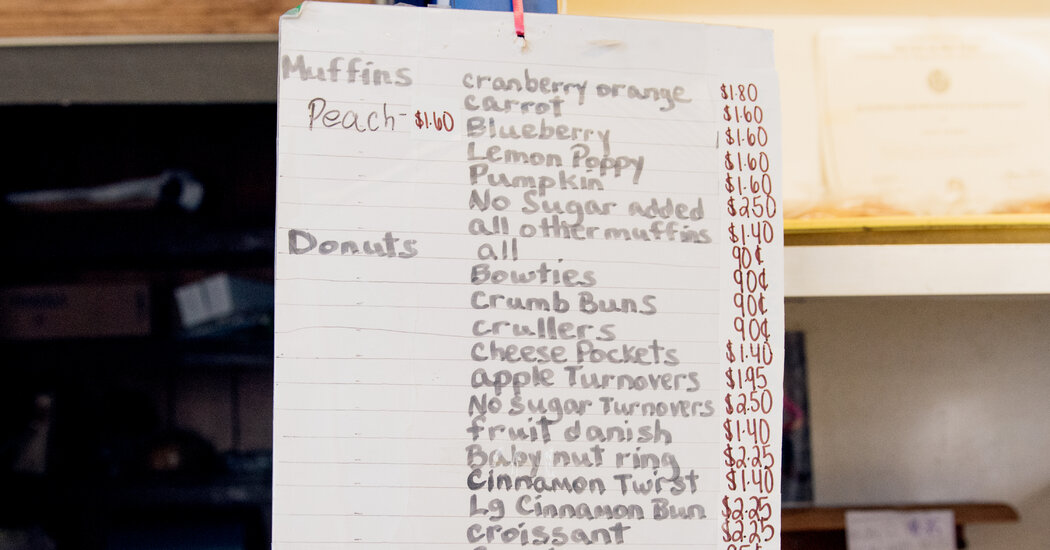 Muffins cranberry orange $1.80
carrot $1.60
Peach- $1.60 Blueberry $1.60
Lemon Poppy $1.60
Pumpkin $1.60
No Sugar added $2.50
all other muffins $1.40
Donuts all 90¢
Bowties 90¢
Crumb Buns 90¢
crullers 90¢
Cheese Pockets $1.40
apple Turnovers $1.95
No Sugar Turnovers $2.50
fruit danish $1.40
Baby nut ring $2.25
Cinnamon Twist $1.40
Lg Cinnamon Bun $2.25
croissant $2.25